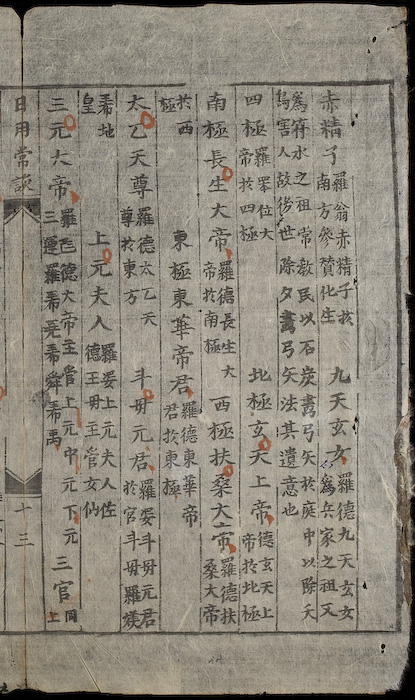 赤精子
羅翁赤精子於
南方參贊化生
九天玄女
羅德九天玄女
爲兵家之祖又
爲符水之祖常教民以石炭畵弓矢於庭中以除夭
鳥害人故後世除夕畵弓矢法其遺意也
四極
羅眾位大
帝於四極
北極玄天上帝
德玄天上
帝於北極
南極長生大帝
羅德長生大
帝於南極
西極扶桑大帝
羅德扶
桑大帝
於西
極
東極東華帝君
羅德東華帝
君於東極
太乙天尊
羅德太乙天
尊於東方
斗母元君
羅娑斗母元君
於宮斗母羅媄
希地
皇
上元夫人
羅娑上元夫人佐
德王母至當女仙
三元大帝
羅𠀧德大帝至當上元中元下元
三運羅希堯希舜希禹
三官
同
上
日用常談
十三